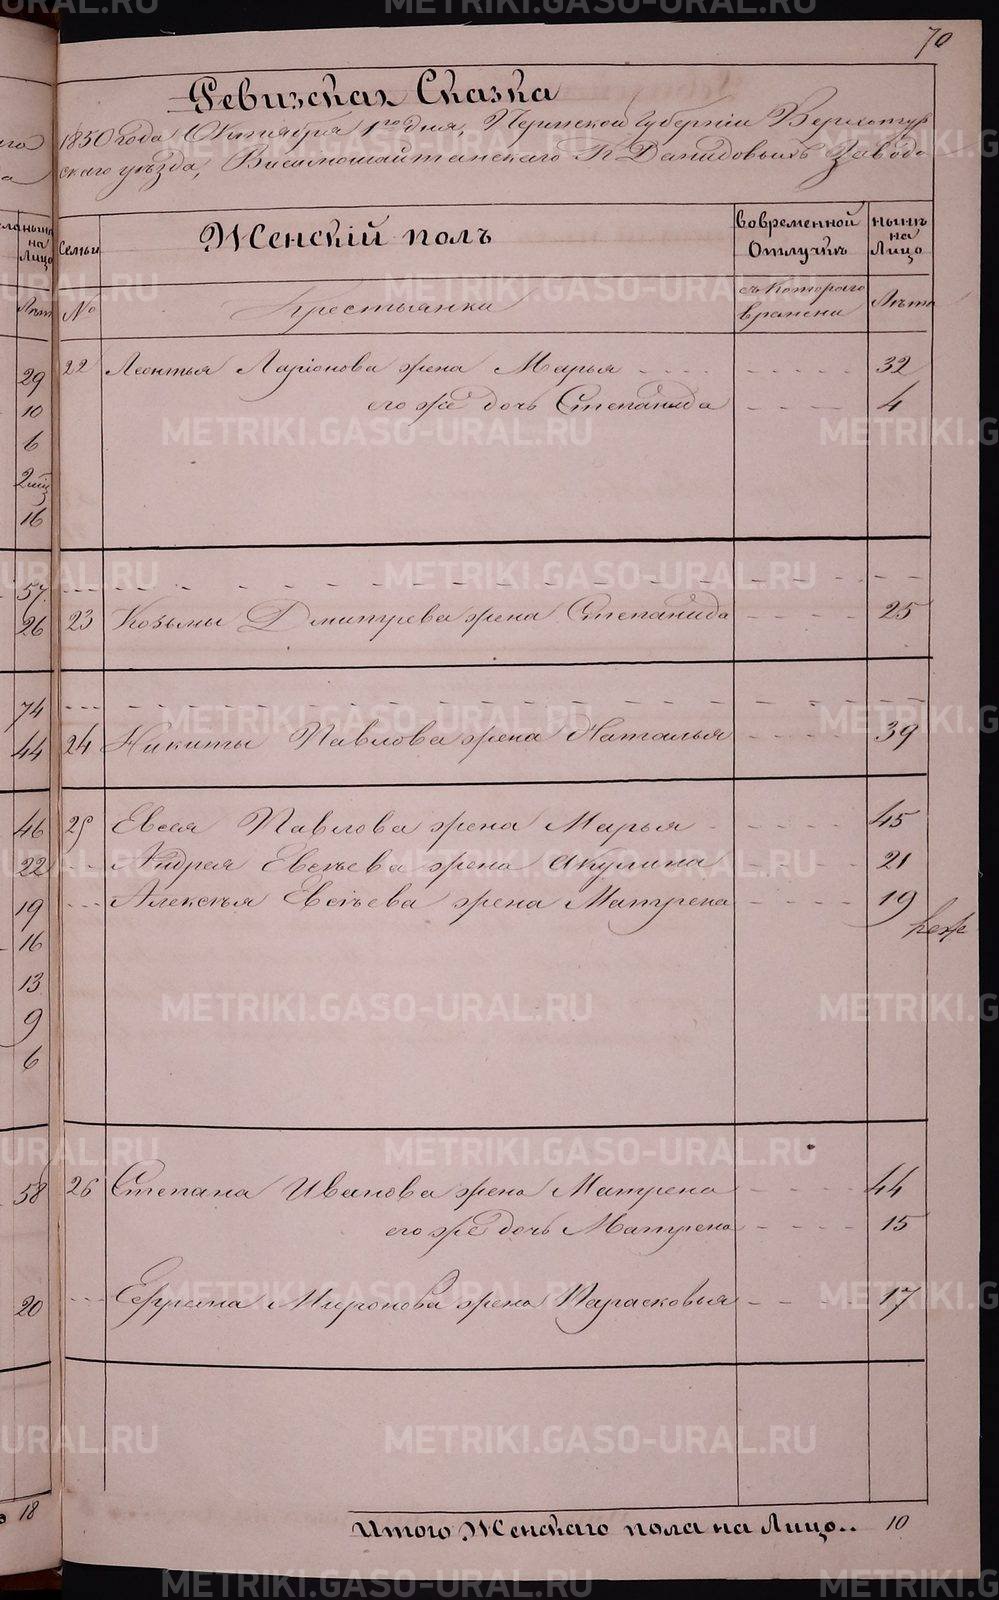 70
Ревизская Сказка
1850 года Октября 1го дня, Пермской Губернии Верхотур
скаго уезда, Висимошайтанскаго Н Демидовыхъ Завода
Семьи
Женскій полъ
Вовременной Отлучкѣ
ныне на Лицо
№
Крестьянка
съ Котораго времени
Лѣта
22 Леонтья Ларіонова жена Марья - - - - - - - - - 32
его же дочь Степанида - - - - 4
23 Козьмы Дмитрева жена Степанида - - - - 25
24 Никиты Павлова жена Наталья - - - - 39
25 Евсея Павлова жена Марья - - - - - 45
- - - Андрея Евсѣева жена Акулина - - - - 21
- - - Алексѣя Евсѣева жена Матрена - - - - 19
26 Степана Иванова жена Матрена - - - - 44
его же дочь Матрена - - - - 15
- - - Ефрема Миронова жена Парасковья - - - - 17
Итого Женскаго пола на Лицо.. 10
ныне
на
Лицо
Лѣта
29
10
6
2 мѣц
16
57
26
74
44
46
22
19
16
13
9
6
58
20
18
METRIKI.GASO-URAL.RU